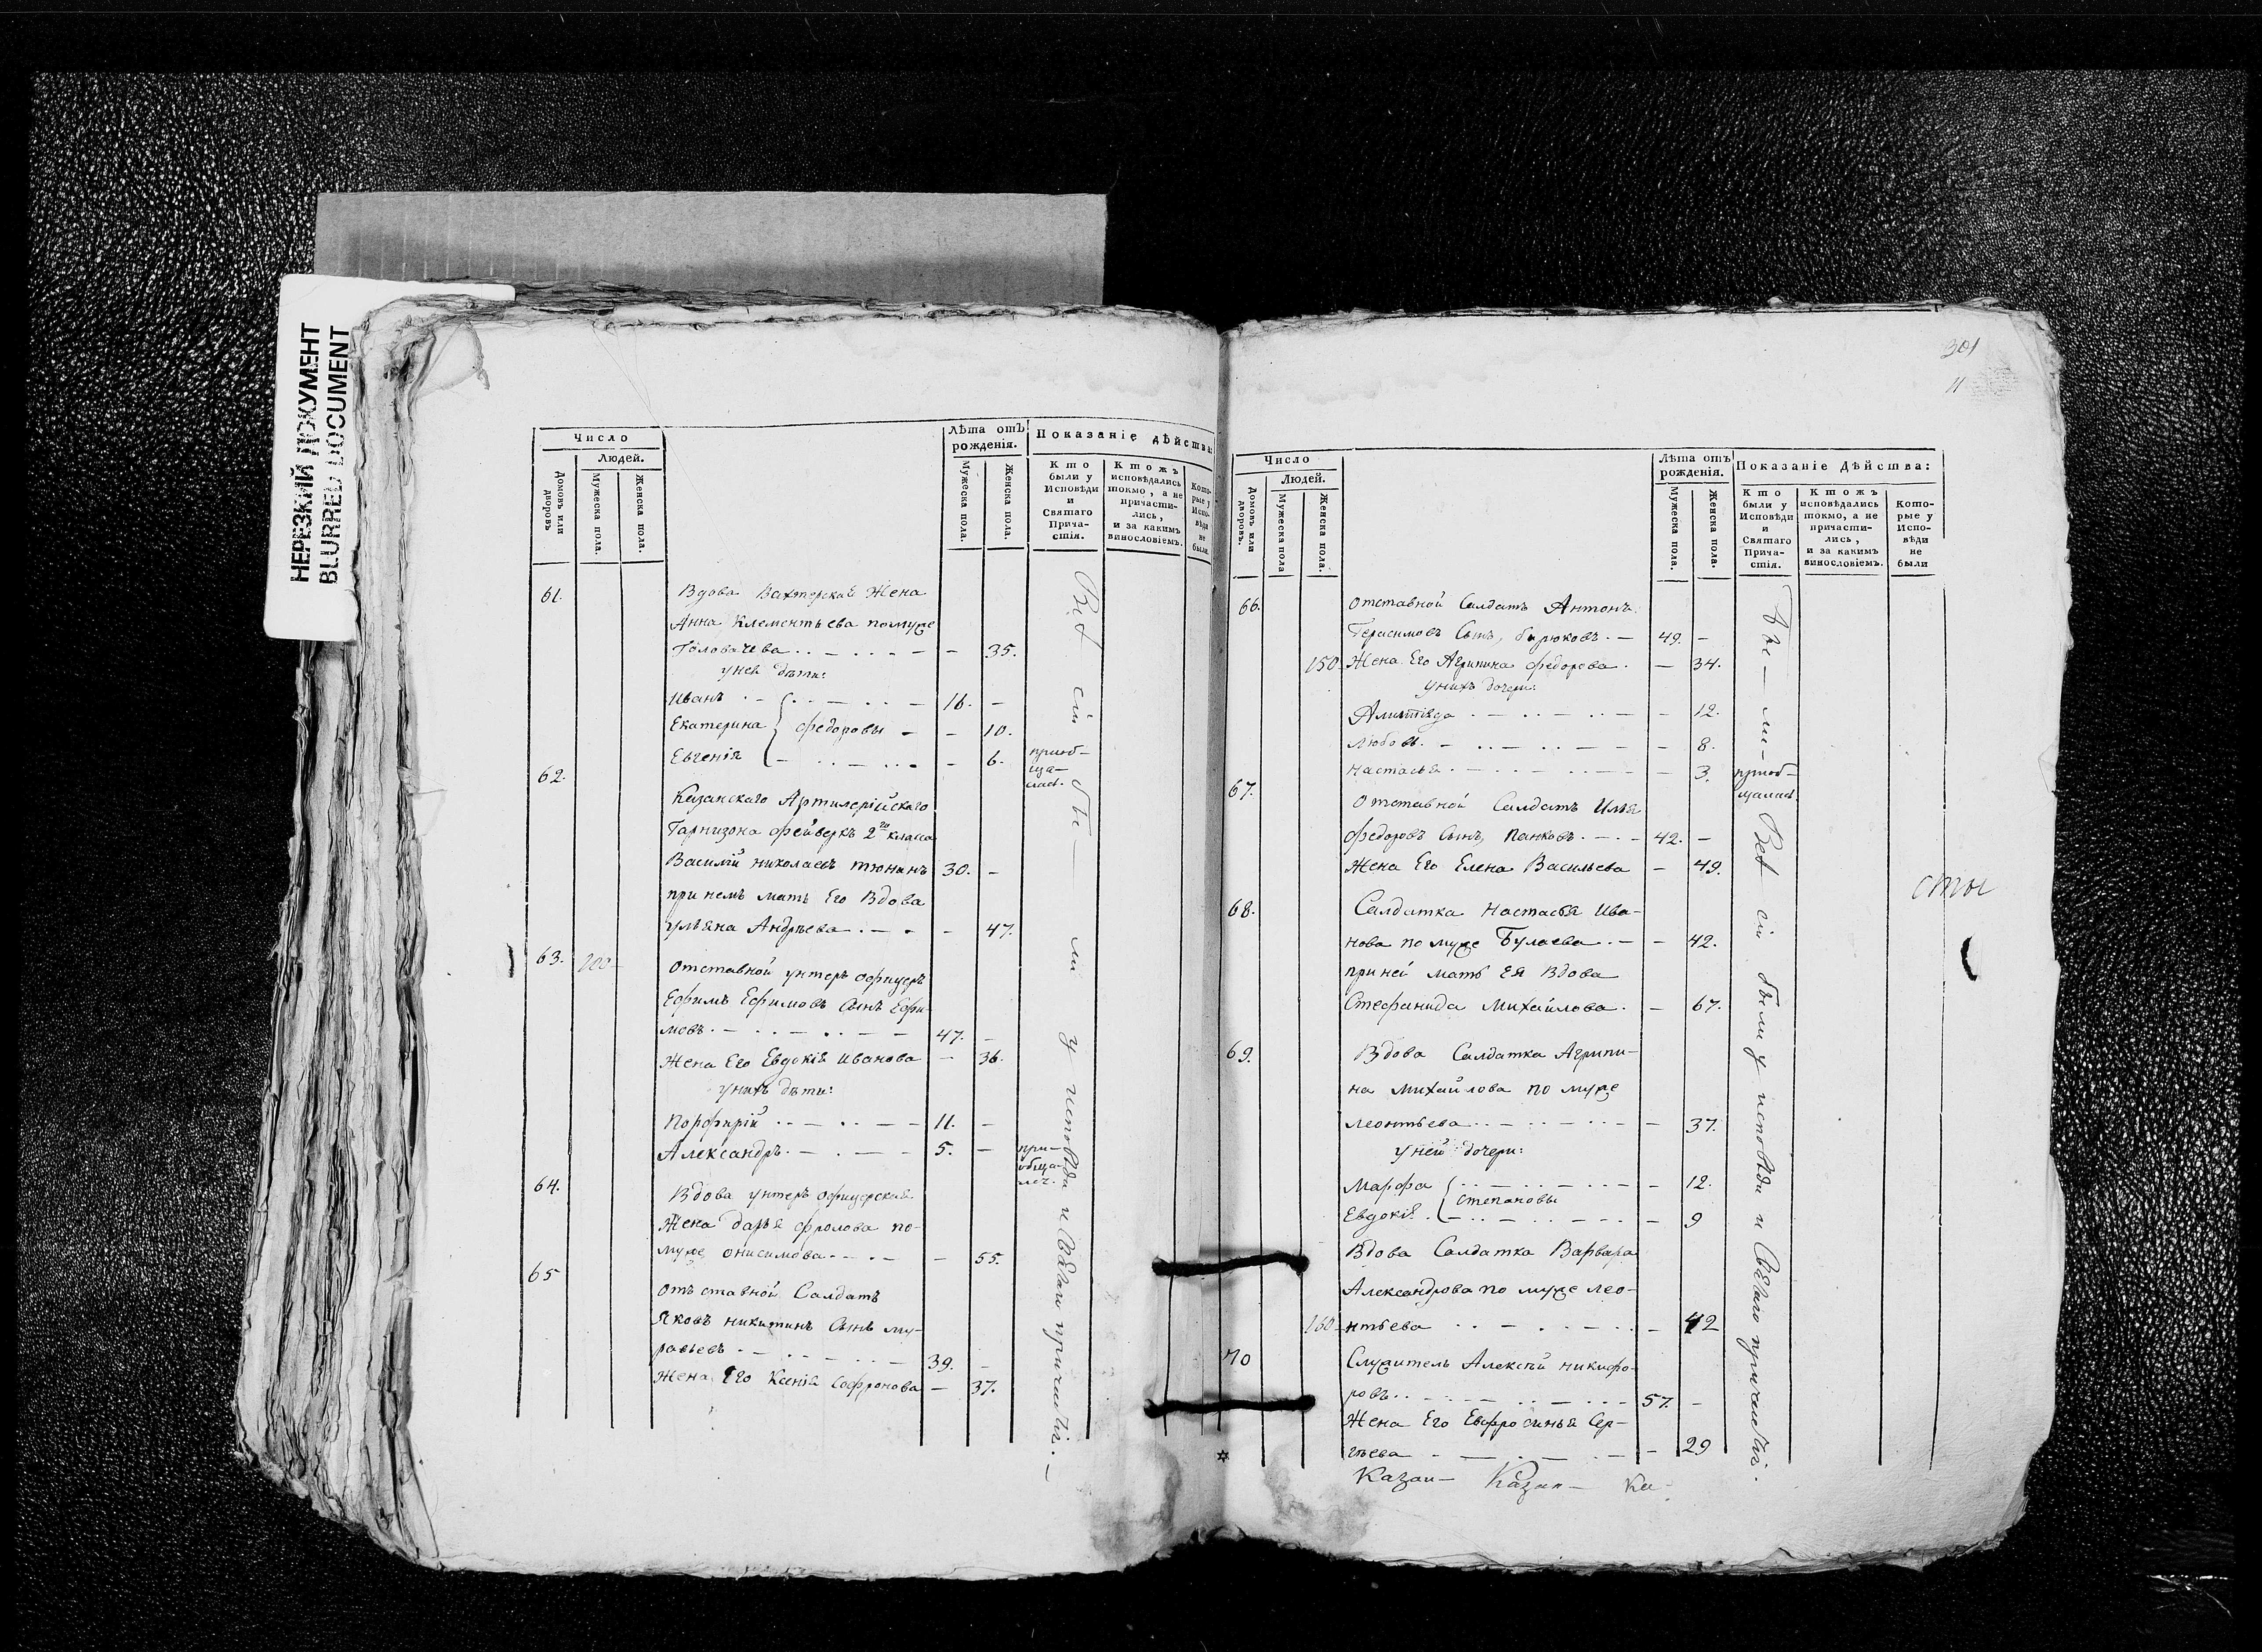 НЕРЕЗКИЙ ДОКУМЕНТ
BLURRED DOCUMENT
Число
Людей.
Домовъ или дворовъ
Мужеска пола.
Женска пола.
Лѣта отъ рожденія.
Мужеска пола.
Женска пола.
Показаніе дѣйства:
Кто были у Исповѣди и Святаго Причастія.
Ктожъ исповѣдались токмо, а не причастились, и за какимъ винословіемъ.
Которые у Исповѣди не были
61. Вдова Вахтерская Жена
Анна Клементьева по муже
Головачева - 35.
у ней дѣти:
Иванъ 16. -
Екатерина Федоровы - 10.
Евгенія - 6.
62.
Казанскаго Артилерійскаго
Гарнизона фейверкъ 2го класса
Василій николаевъ тюнинъ 30. -
при немъ мать Его Вдова
ульяна Андрѣева - 47.
63. 100
Отставной унтеръ офицеръ
Ефимъ Ефимовъ Сынъ Ефи-
мовъ 47. -
Жена Его Евдокія Иванова - 36.
у нихъ дѣти:
Порфирій 11. -
Александръ 5. -
64. Вдова унтеръ офицерская
Жена дарья фролова по-
муже онисимова - 55.
65
Отъставной Салдатъ
Яковъ никитинъ Сынъ му-
равьевъ 39. -
Жена Его Ксенія Софронова - 37.
Всѣ сіи были у исповѣди и Святаго причастія.
приоб-
ща-
лись.
при-
обща-
лсь.
301
11
Число
Людей.
Домовъ или дворовъ.
Мужеска пола
Женска пола.
Лѣта отъ рожденія.
Мужеска пола.
Женска пола.
Показаніе Дѣйства:
Кто были у Исповѣди и Святаго Причастія.
Ктожъ исповѣдались токмо, а не причастились, и за какимъ винословіемъ.
Которые у Исповѣди не были
66. отставной Салдатъ Антонъ
Герасимовъ Сынъ, бирюковъ. 49. -
150 Жена Его Агрипина федорова. - 34.
у нихъ дочери:
- 12.
Любовь. - 8.
настасья - 3.
67.
Отставной Салдатъ Илья
федоровъ Сынъ, Панковъ 42. -
Жена Его Елена Васильева - 49.
68. Салдатка Настасья Ива-
нова по муже Булаева - 42.
при ней мать Ея Вдова
Стефанида Михайлова. - 67.
69. Вдова Салдатка Агрипи-
на михайлова по муже
леонтьева - 37.
у ней дочери:
Марфа - 12.
Степановы
Евдокія - 9
Вдова Салдатка Варвара
Александрова по муже лео-
160 нтьева - 42
70 Служитель Алексѣй никифо-
ровъ 57. -
Жена Его Евфросинья Сер-
гѣева - 29
приоб-
щались
Всѣ сіи были у исповѣди и Святаго причастія.
сты
Казан- Казан- Ка-